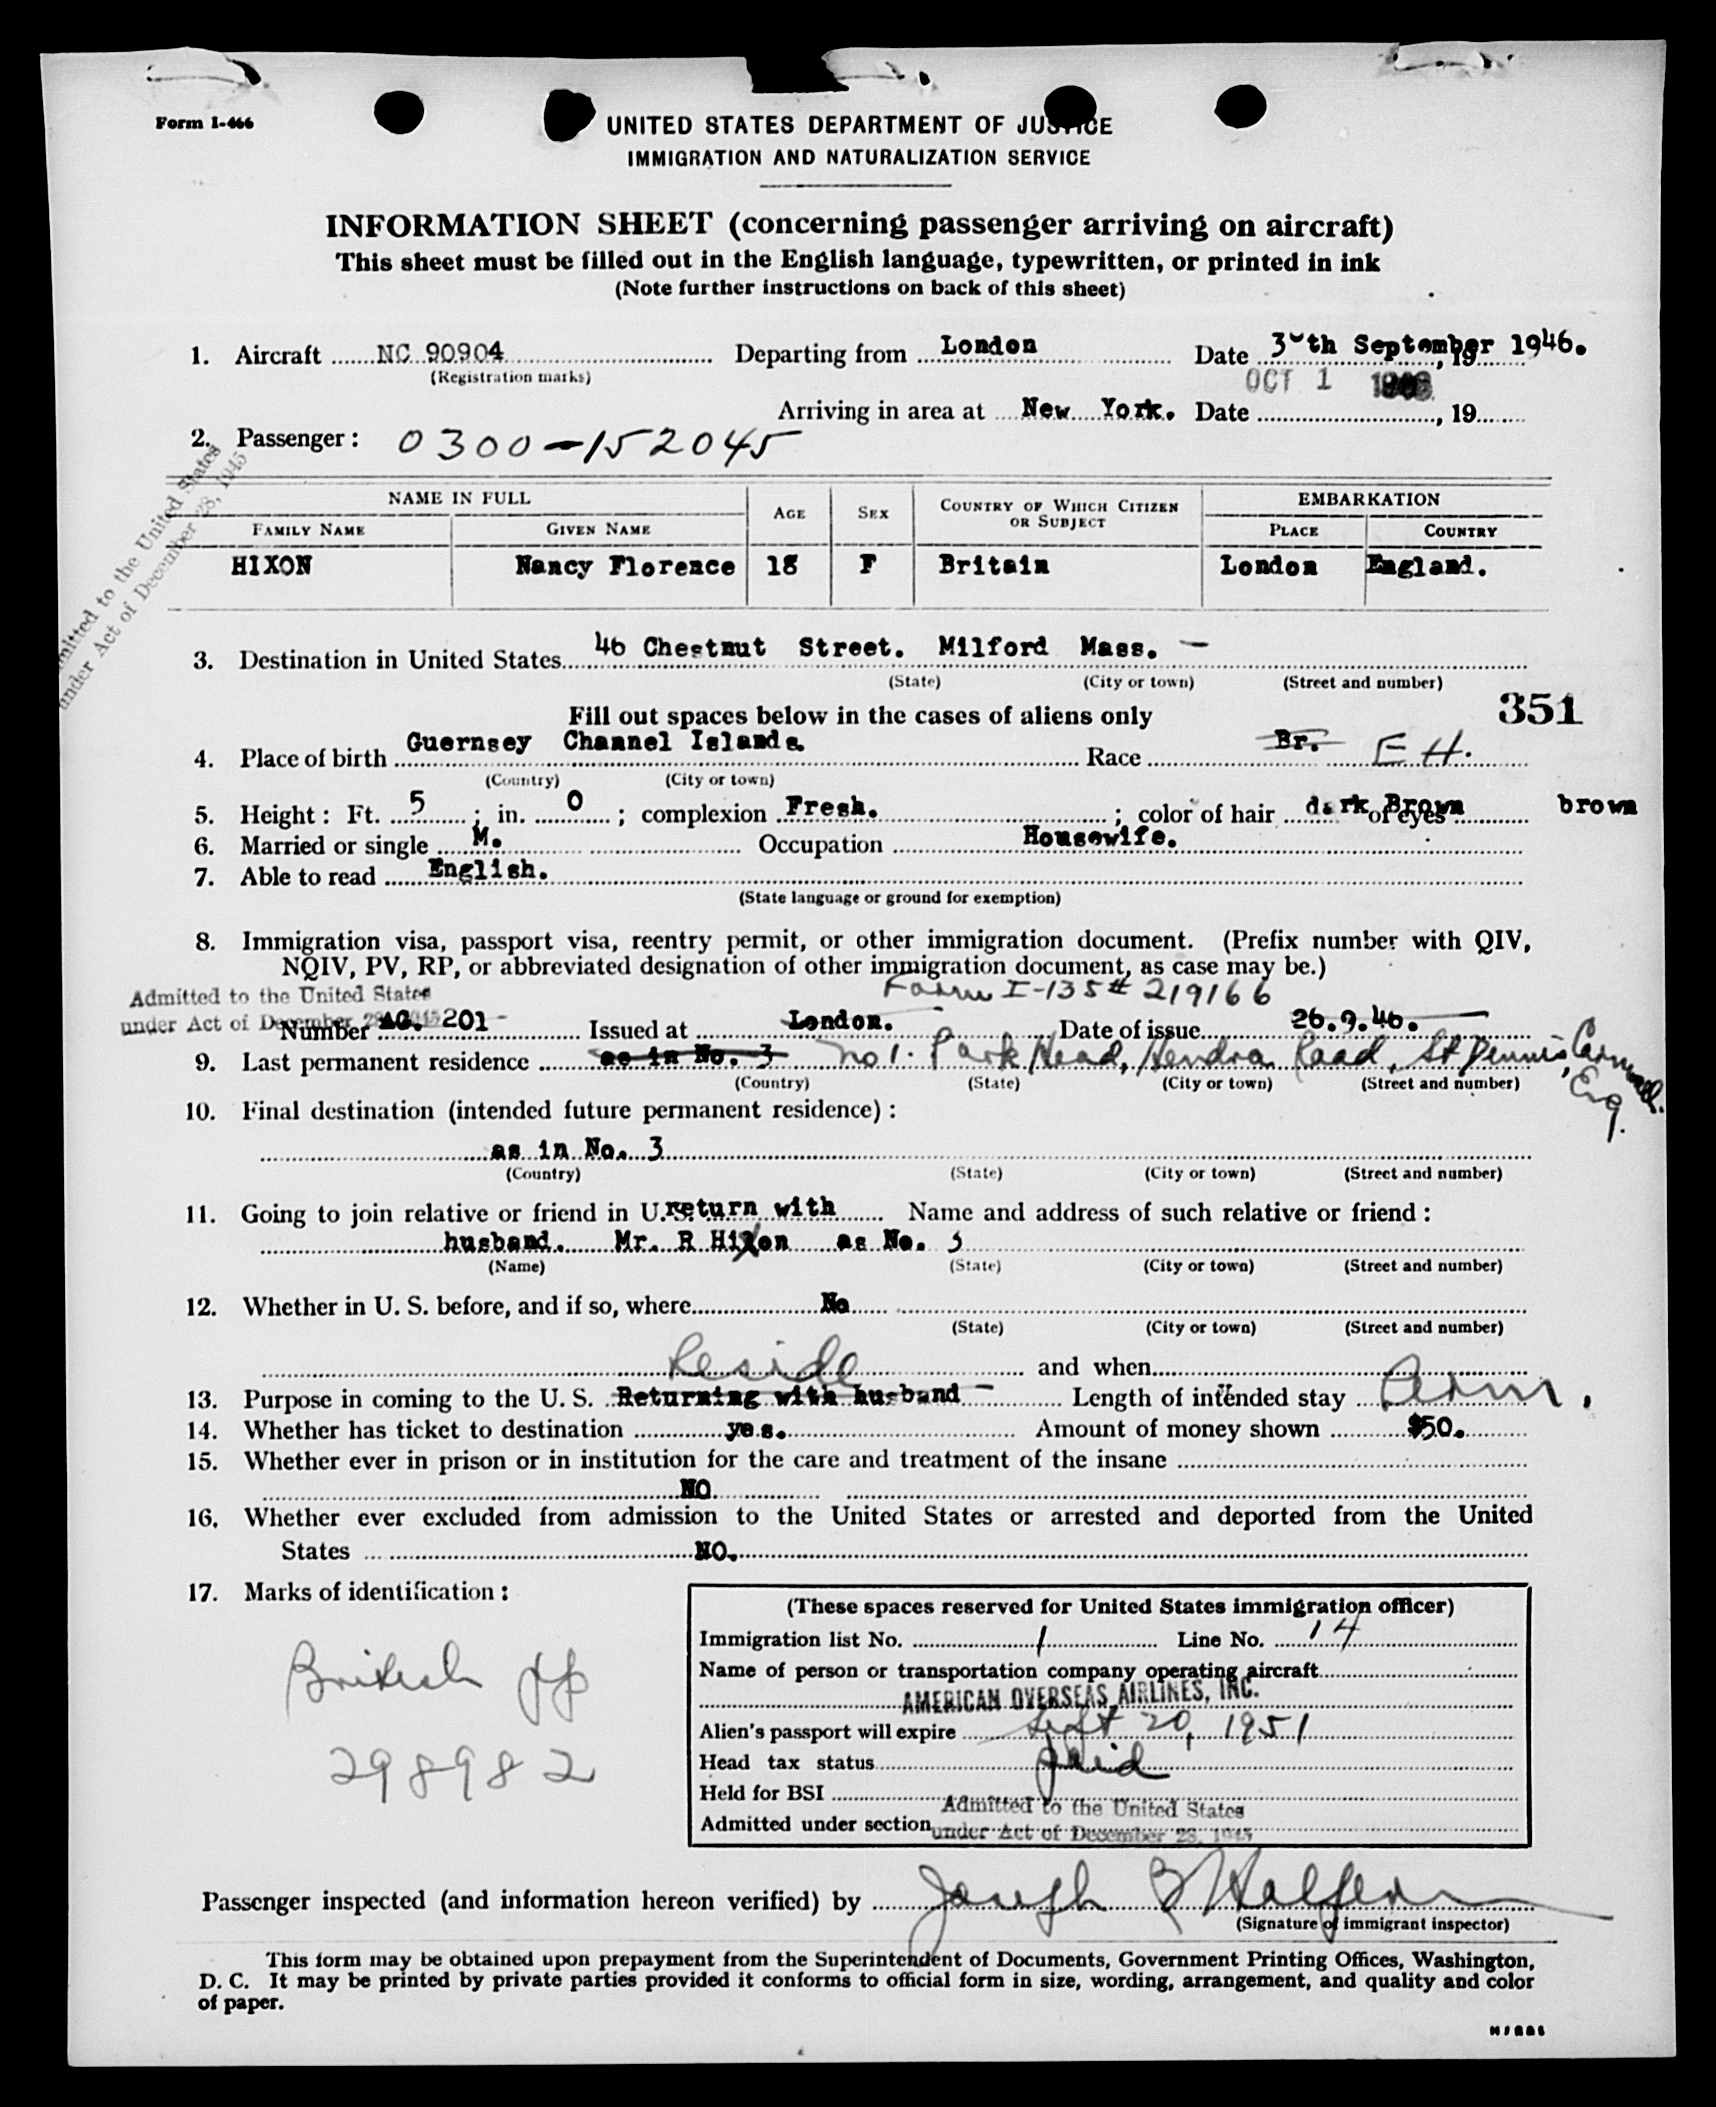 Form I-466
UNITED STATES DEPARTMENT OF JUSTICE
IMMIGRATION AND NATURALIZATION SERVICE
INFORMATION SHEET (concerning passenger arriving on aircraft)
This sheet must be filled out in the English language, typewritten, or printed in ink
(Note further instructions on back of this sheet)
1. Aircraft NC 90904 Departing from London Date 30th September 1946. , 19
(Registration marks) OCT 1 1946
Arriving in area at New York. Date , 19
2. Passenger: 0300-152045
NAME IN FULL AGE SEX COUNTRY OF WHICH CITIZEN OR SUBJECT EMBARKATION
FAMILY NAME GIVEN NAME PLACE COUNTRY
HIXON Nancy Florence 18 F Britain London England.
Admitted to the United States
under Act of December 28, 1945
3. Destination in United States 46 Chestnut Street. Milford Mass. -
(State) (City or town) (Street and number)
351
Fill out spaces below in the cases of aliens only
4. Place of birth Guernsey Channel Islands. Race Br. E H.
(Country) (City or town)
5. Height: Ft. 5 ; in. 0 ; complexion Fresh. ; color of hair dark Brown of eyes brown
6. Married or single M. Occupation Housewife.
7. Able to read English.
(State language or ground for exemption)
8. Immigration visa, passport visa, reentry permit, or other immigration document. (Prefix number with QIV,
NQIV, PV, RP, or abbreviated designation of other immigration document, as case may be.)
Admitted to the United States
under Act of December 28, 1945
Form I-135# 219166
Number 201 - Issued at London. Date of issue 26.9.46.
9. Last permanent residence as in No. 3 No 1. Park Head, Hendra Road, St Dennis, Cornwall. Eng.
(Country) (State) (City or town) (Street and number)
10. Final destination (intended future permanent residence):
as in No. 3
(Country) (State) (City or town) (Street and number)
11. Going to join relative or friend in U.S. return with Name and address of such relative or friend:
husband. Mr. R Hixon as No. 3
(Name) (State) (City or town) (Street and number)
12. Whether in U. S. before, and if so, where No
(State) (City or town) (Street and number)
Reside and when
13. Purpose in coming to the U. S. Returning with husband - Length of intended stay Perm.
14. Whether has ticket to destination yes. Amount of money shown $50.
15. Whether ever in prison or in institution for the care and treatment of the insane
NO
16. Whether ever excluded from admission to the United States or arrested and deported from the United
States NO.
17. Marks of identification:
British pp
298982
(These spaces reserved for United States immigration officer)
Immigration list No. 1 Line No. 14
Name of person or transportation company operating aircraft
AMERICAN OVERSEAS AIRLINES, INC.
Alien's passport will expire Sept 20, 1951
Head tax status paid
Held for BSI
Admitted under section Admitted to the United States
under Act of December 28, 1945
Passenger inspected (and information hereon verified) by Joseph
(Signature of immigrant inspector)
This form may be obtained upon prepayment from the Superintendent of Documents, Government Printing Offices, Washington,
D. C. It may be printed by private parties provided it conforms to official form in size, wording, arrangement, and quality and color
of paper.